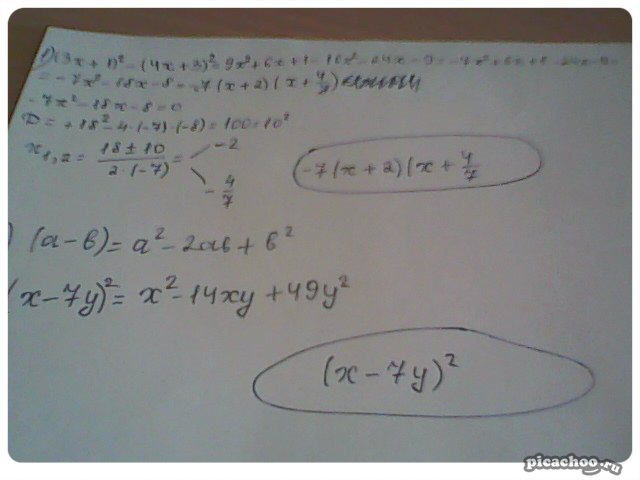 1) (3x + 1)² - (4x + 3)² = 9x² + 6x + 1 - 16x² - 24x - 9 = -7x² + 6x + 1 - 24x - 9 =
= - 7x² - 18x - 8 = -7 (x + 2) (x + 4/7)
- 7x² - 18x - 8 = 0
D = + 18² - 4 · (-7) · (-8) = 100 = 10²
x1,2 = (18 ± 10)/(2 · (-7)) = -2
- 4/7
-7 (x + 2) (x + 4/7
) (a - b) = a² - 2ab + b²
(x - 7y)² = x² - 14xy + 49y²
(x - 7y)²
picachoo.ru